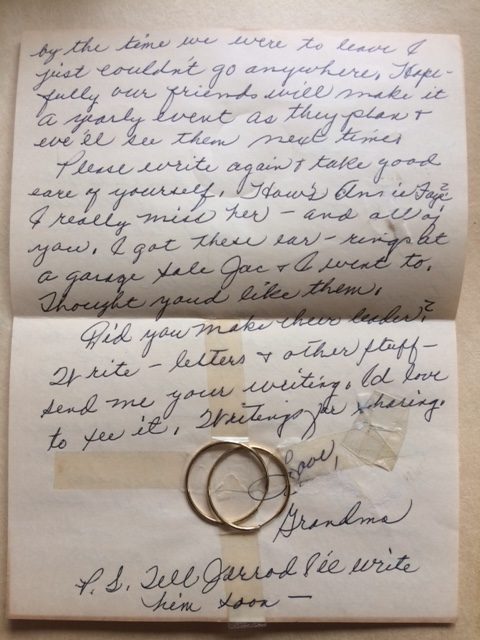 by the time we were to leave I
just couldn't go anywhere. Hope-
fully our friends will make it
a yearly event as they plan &
we'll see them next time.
Please write again & take good
care of yourself. How's Annie Faye?
I really miss her - and all of
you. I got these ear-rings at
a garage sale Jac & I went to.
Thought you'd like them.
Did you make cheer leader?
Write - letters & other stuff -
send me your writing. I'd love
to see it. Writings for sharing.
Love,
Grandma
P.S. Tell Jarrod I'll write
him soon -